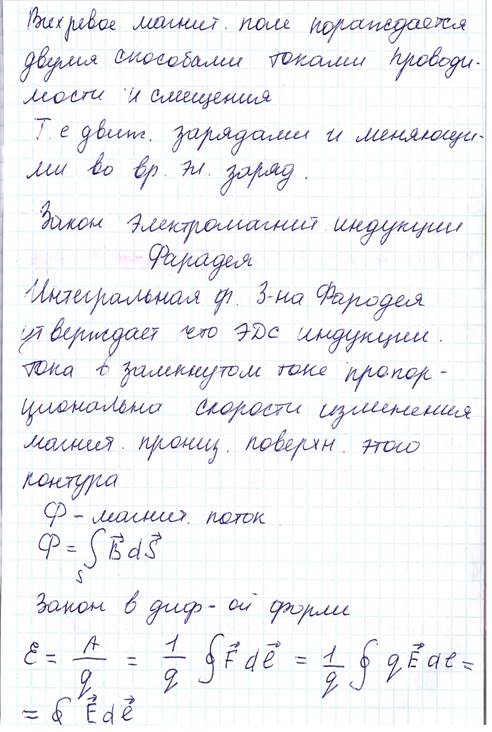 Вихревое магнит. поле пораждается
двумя способами токами проводи-
мости и смещения
Т.е движ. зарядами и меняющи-
ми во вр. эл. заряд.
Закон электромагнит индукции
Фарадея
Интегральная ф. З-на Фародея
утверждает что ЭДС индукции.
тока в замкнутом токе пропор-
циональна скорости изменения
магнит. прониц. поверхн. этого
контура
Ф - магнит. поток
Ф = ∫_S B⃗ dS⃗
Закон в диф-ой форми
ℰ = A/q = 1/q ∮ F⃗ dℓ⃗ = 1/q ∮ qE⃗ dℓ =
= ∮ E⃗ dℓ⃗